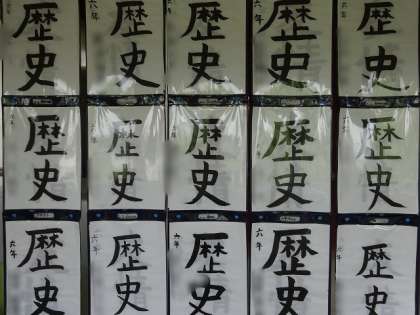 六年 歴史
六年 歴史
歴史
六年 歴史
六年 歴史
歴史
六年 歴史
歴史
六年 歴史
六年 歴史
六年 歴史
六年 歴史
六年 歴史
六年 歴史
歴史